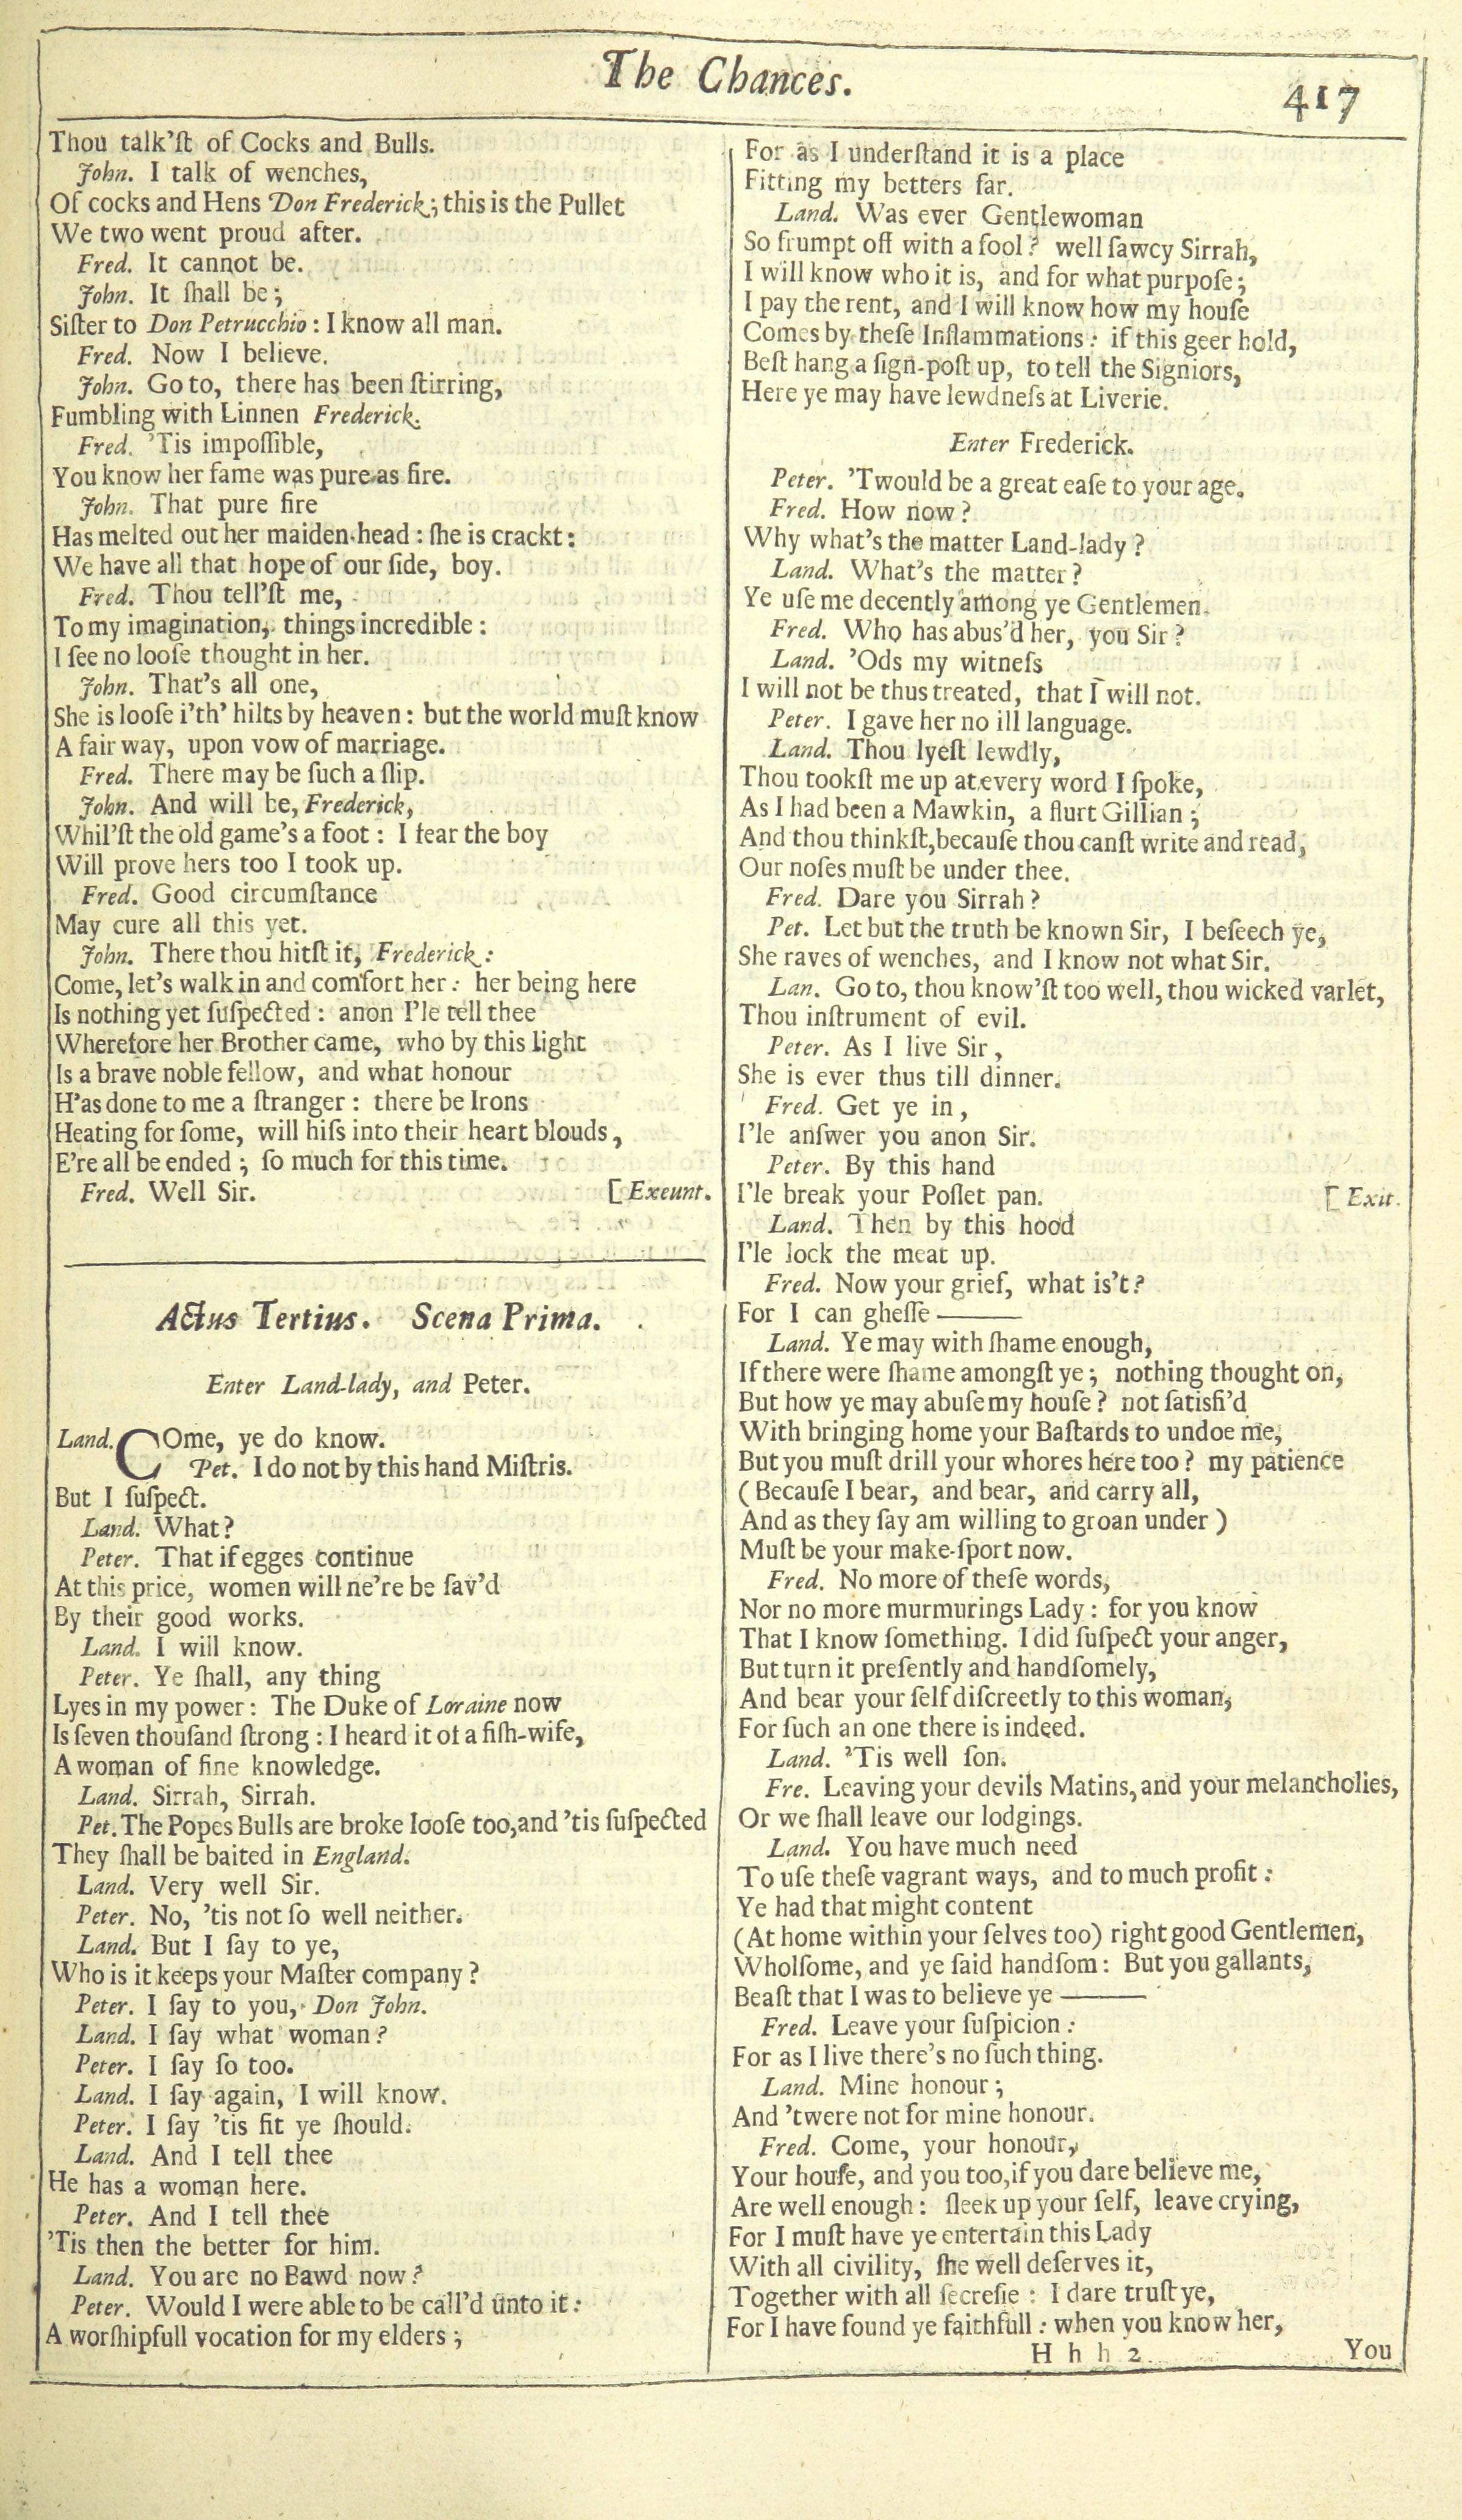 The Chances.
417
Thou talk'ſt of Cocks and Bulls.
John. I talk of wenches,
Of cocks and Hens Don Frederick; this is the Pullet
We two went proud after.
Fred. It cannot be.
John. It ſhall be;
Siſter to Don Petrucchio: I know all man.
Fred. Now I believe.
John. Go to, there has been ſtirring,
Fumbling with Linnen Frederick.
Fred. 'Tis impoſſible,
You know her fame was pure as fire.
John. That pure fire
Has melted out her maiden-head: ſhe is crackt:
We have all that hope of our ſide, boy.
Fred. Thou tell'ſt me,
To my imagination, things incredible:
I ſee no looſe thought in her.
John. That's all one,
She is looſe i'th' hilts by heaven: but the world muſt know
A fair way, upon vow of marriage.
Fred. There may be ſuch a ſlip.
John. And will be, Frederick,
Whil'ſt the old game's a foot: I fear the boy
Will prove hers too I took up.
Fred. Good circumſtance
May cure all this yet.
John. There thou hitſt it, Frederick:
Come, let's walk in and comfort her: her being here
Is nothing yet ſuſpected: anon I'le tell thee
Wherefore her Brother came, who by this light
Is a brave noble fellow, and what honour
H'as done to me a ſtranger: there be Irons
Heating for ſome, will hiſs into their heart blouds,
E're all be ended; ſo much for this time.
Fred. Well Sir. [Exeunt.
Actus Tertius. Scena Prima.
Enter Land-lady, and Peter.
Land. COme, ye do know.
Pet. I do not by this hand Miſtris.
But I ſuſpect.
Land. What?
Peter. That if egges continue
At this price, women will ne're be ſav'd
By their good works.
Land. I will know.
Peter. Ye ſhall, any thing
Lyes in my power: The Duke of Loraine now
Is ſeven thouſand ſtrong: I heard it of a fiſh-wife,
A woman of fine knowledge.
Land. Sirrah, Sirrah.
Pet. The Popes Bulls are broke looſe too, and 'tis ſuſpected
They ſhall be baited in England.
Land. Very well Sir.
Peter. No, 'tis not ſo well neither.
Land. But I ſay to ye,
Who is it keeps your Maſter company?
Peter. I ſay to you, Don John.
Land. I ſay what woman?
Peter. I ſay ſo too.
Land. I ſay again, I will know.
Peter. I ſay 'tis fit ye ſhould.
Land. And I tell thee
He has a woman here.
Peter. And I tell thee
'Tis then the better for him.
Land. You are no Bawd now?
Peter. Would I were able to be call'd unto it:
A worſhipfull vocation for my elders;
For as I underſtand it is a place
Fitting my betters far.
Land. Was ever Gentlewoman
So frumpt off with a fool? well ſawcy Sirrah,
I will know who it is, and for what purpoſe;
I pay the rent, and I will know how my houſe
Comes by theſe Inflammations: if this geer hold,
Beſt hang a ſign-poſt up, to tell the Signiors,
Here ye may have lewdneſs at Liverie.
Enter Frederick.
Peter. 'Twould be a great eaſe to your age.
Fred. How now?
Why what's the matter Land-lady?
Land. What's the matter?
Ye uſe me decently among ye Gentlemen.
Fred. Who has abus'd her, you Sir?
Land. 'Ods my witneſs
I will not be thus treated, that I will not.
Peter. I gave her no ill language.
Land. Thou lyeſt lewdly,
Thou tookſt me up at every word I ſpoke,
As I had been a Mawkin, a flurt Gillian;
And thou thinkſt, becauſe thou canſt write and read,
Our noſes muſt be under thee.
Fred. Dare you Sirrah?
Pet. Let but the truth be known Sir, I beſeech ye,
She raves of wenches, and I know not what Sir.
Lan. Go to, thou know'ſt too well, thou wicked varlet,
Thou inſtrument of evil.
Peter. As I live Sir,
She is ever thus till dinner.
Fred. Get ye in,
I'le anſwer you anon Sir.
Peter. By this hand
I'le break your Poſſet pan. [Exit.
Land. Then by this hood
I'le lock the meat up.
Fred. Now your grief, what is't?
For I can gheſſe ———
Land. Ye may with ſhame enough,
If there were ſhame amongſt ye; nothing thought on,
But how ye may abuſe my houſe? not ſatisfi'd
With bringing home your Baſtards to undoe me,
But you muſt drill your whores here too? my patience
(Becauſe I bear, and bear, and carry all,
And as they ſay am willing to groan under)
Muſt be your make-ſport now.
Fred. No more of theſe words,
Nor no more murmurings Lady: for you know
That I know ſomething. I did ſuſpect your anger,
But turn it preſently and handſomely,
And bear your ſelf diſcreetly to this woman,
For ſuch an one there is indeed.
Land. 'Tis well ſon.
Fre. Leaving your devils Matins, and your melancholies,
Or we ſhall leave our lodgings.
Land. You have much need
To uſe theſe vagrant ways, and to much profit:
Ye had that might content
(At home within your ſelves too) right good Gentlemen,
Wholſome, and ye ſaid handſom: But you gallants,
Beaſt that I was to believe ye ———
Fred. Leave your ſuſpicion:
For as I live there's no ſuch thing.
Land. Mine honour;
And 'twere not for mine honour.
Fred. Come, your honour,
Your houſe, and you too, if you dare believe me,
Are well enough: ſleek up your ſelf, leave crying,
For I muſt have ye entertain this Lady
With all civility, ſhe well deſerves it,
Together with all ſecreſie: I dare truſt ye,
For I have found ye faithfull: when you know her,
H h h 2
You